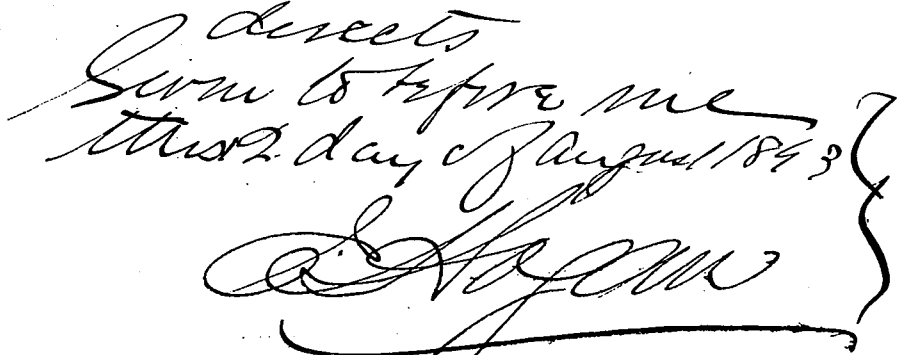 directs
Sworn to before me
this 2 day of August 1893
Hogan